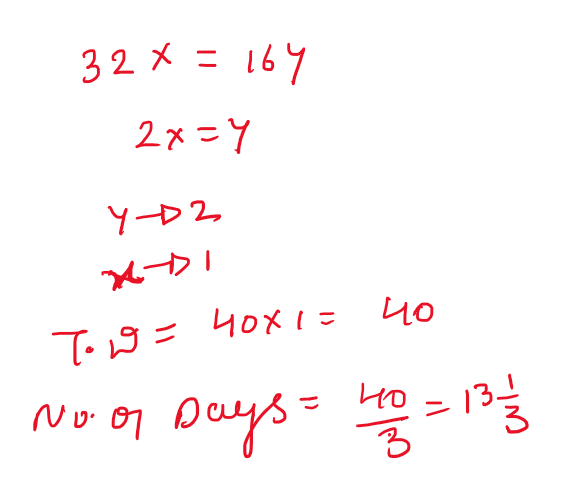 32x = 16y
2x = y
y → 2
x → 1
T.W = 40 × 1 = 40
No. of Days = 40/3 = 13 1/3